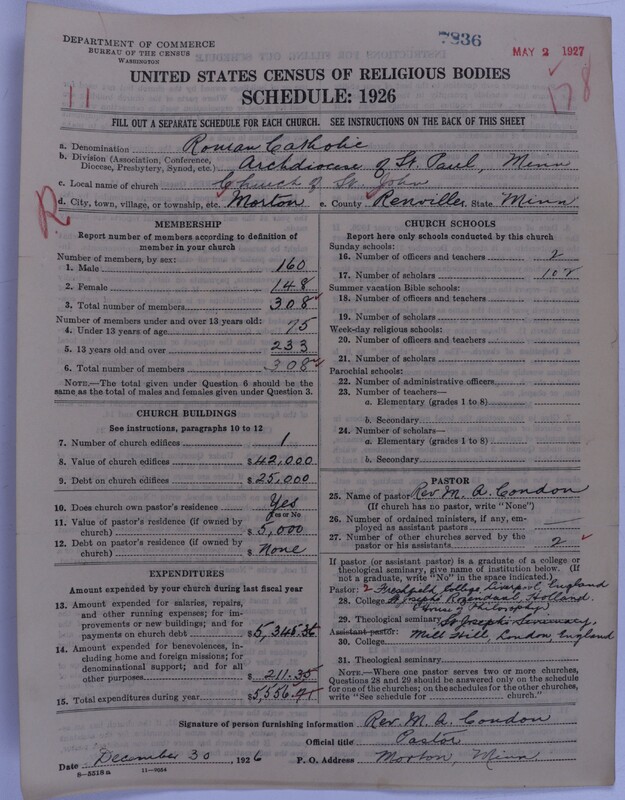 DEPARTMENT OF COMMERCE
BUREAU OF THE CENSUS
WASHINGTON
7836
MAY 2 1927
UNITED STATES CENSUS OF RELIGIOUS BODIES
11
SCHEDULE: 1926
178
FILL OUT A SEPARATE SCHEDULE FOR EACH CHURCH. SEE INSTRUCTIONS ON THE BACK OF THIS SHEET
a. Denomination Roman Catholic
b. Division (Association, Conference, Diocese, Presbytery, Synod, etc.) Archdiocese of St. Paul, Minn
c. Local name of church Church of St. John
d. City, town, village, or township, etc. Morton e. County Renville, State Minn
R
MEMBERSHIP
Report number of members according to definition of member in your church
Number of members, by sex:
1. Male 160
2. Female 148
3. Total number of members 308
Number of members under and over 13 years old:
4. Under 13 years of age 75
5. 13 years old and over 233
6. Total number of members 308
NOTE.—The total given under Question 6 should be the same as the total of males and females given under Question 3.
CHURCH BUILDINGS
See instructions, paragraphs 10 to 12
7. Number of church edifices 1
8. Value of church edifices $42,000
9. Debt on church edifices $25,000
10. Does church own pastor's residence Yes
Yes or No
11. Value of pastor's residence (if owned by church) $5,000
12. Debt on pastor's residence (if owned by church) $None
EXPENDITURES
Amount expended by your church during last fiscal year
13. Amount expended for salaries, repairs, and other running expenses; for improvements or new buildings; and for payments on church debt $5,345.36
14. Amount expended for benevolences, including home and foreign missions; for denominational support; and for all other purposes $211.35
15. Total expenditures during year $5,556.
CHURCH SCHOOLS
Report here only schools conducted by this church
Sunday schools:
16. Number of officers and teachers 2
17. Number of scholars 102
Summer vacation Bible schools:
18. Number of officers and teachers
19. Number of scholars
Week-day religious schools:
20. Number of officers and teachers
21. Number of scholars
Parochial schools:
22. Number of administrative officers
23. Number of teachers—
a. Elementary (grades 1 to 8)
b. Secondary
24. Number of scholars—
a. Elementary (grades 1 to 8)
b. Secondary
PASTOR
25. Name of pastor Rev. M. A. Condon
(If church has no pastor, write "None")
26. Number of ordained ministers, if any, employed as assistant pastors
27. Number of other churches served by the pastor or his assistants 2
If pastor (or assistant pastor) is a graduate of a college or theological seminary, give name of institution below. (If not a graduate, write "No" in the space indicated.)
Pastor: 2 Freshfield College Liverpool, England
28. College St Josephs Rozendaal, Holland.
House of Philosophy
29. Theological seminary St Josephs Seminary,
Assistant pastor: Mill Hill, London, England
30. College
31. Theological seminary
NOTE.—Where one pastor serves two or more churches, Questions 28 and 29 should be answered only on the schedule for one of the churches; on the schedules for the other churches, write "See schedule for church."
Signature of person furnishing information Rev. M. A. Condon
Official title Pastor
Date December 30, 1926 P. O. Address Morton, Minn
8-5518a 11-9054